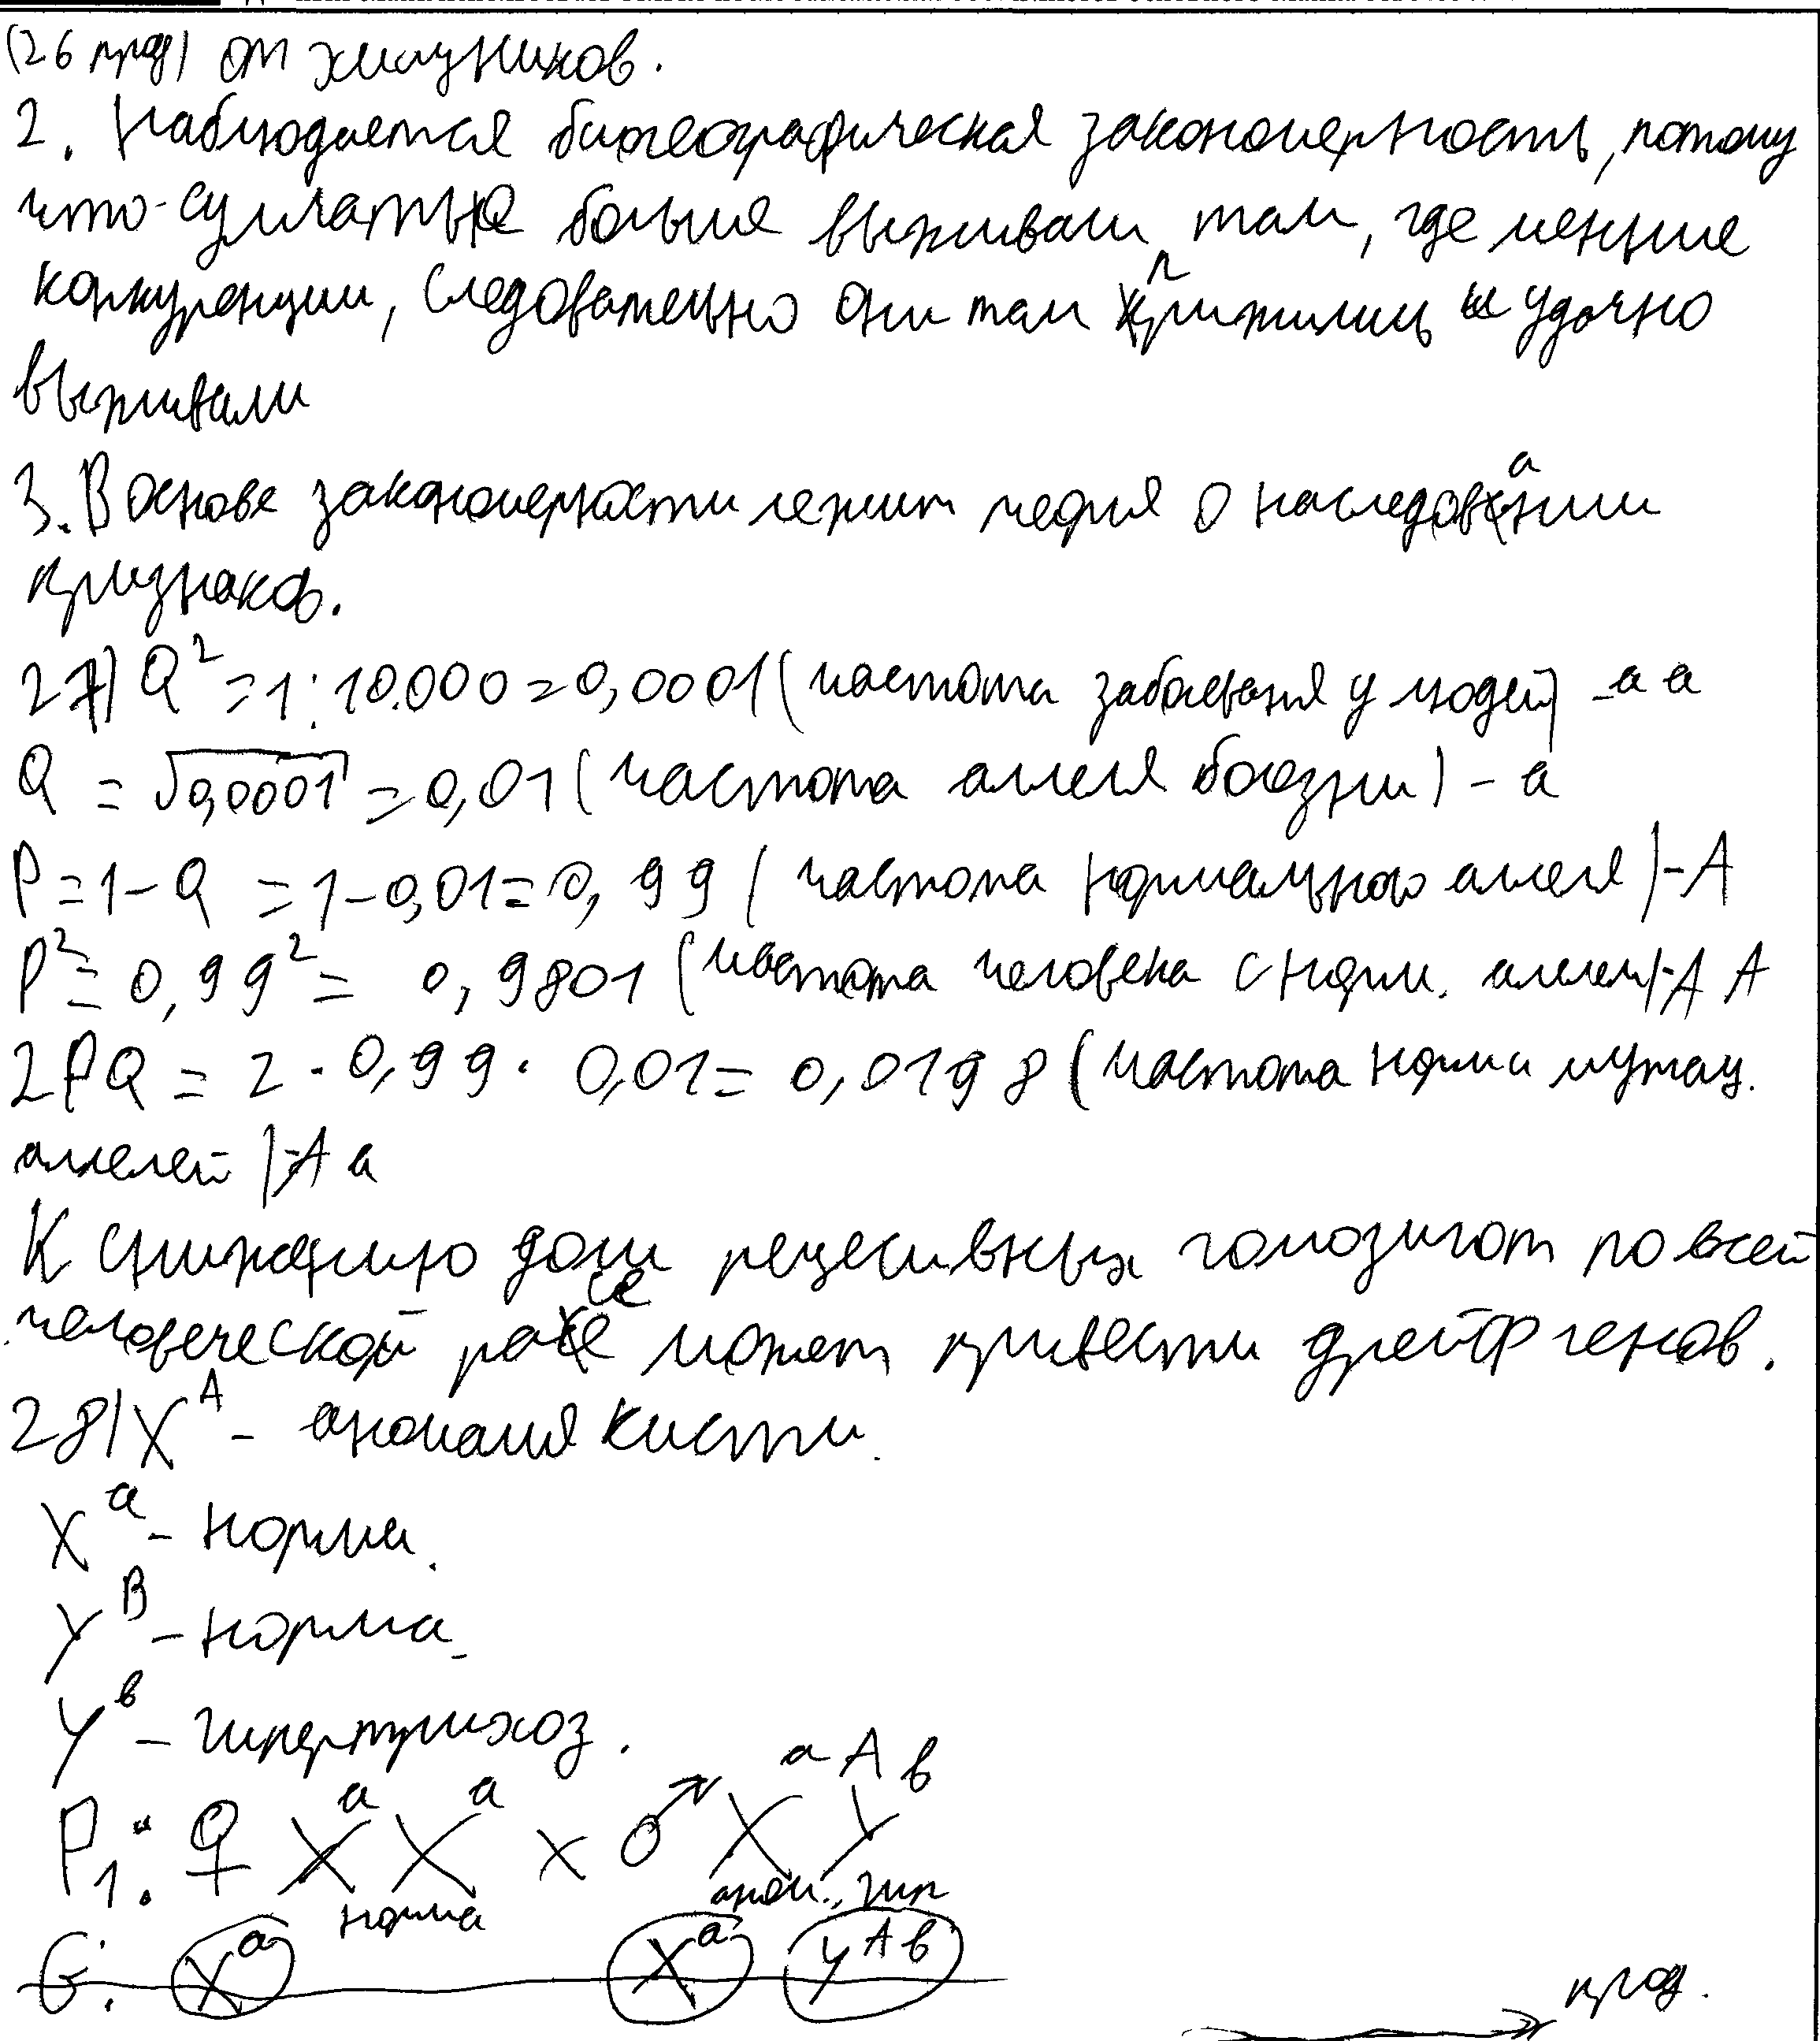 (26 прод) от хищников.
2. Наблюдается биогеографическая закономерность, потому
что сумчатые больше выживали там, где меньше
конкуренции, следовательно они там прижились и удачно
выживали
3. В основе закономерности лежит теория о наследовании
признаков.
27) Q² = 1:10.000 = 0,0001 (частота заболевания у людей) - аа
Q = √0,0001 = 0,01 (частота аллеля болезни) - а
P = 1 - Q = 1 - 0,01 = 0,99 (частота нормального аллеля) - А
P² = 0,99² = 0,9801 (частота человека с норм. аллелем) - АА
2PQ = 2 · 0,99 · 0,01 = 0,0198 (частота норм и мутац.
аллелей) - Аа
К снижению доли рецессивных гомозигот по всей
человеческой расе может привести дрейф генов.
28) Xᴬ - аномалия кисти.
Xᵃ - норма.
Yᴮ - норма.
Yᵇ - гипертрихоз.
P₁: ♀ XᵃXᵃ × ♂ XᵃYᴬᵇ
норма аном., гип
G: Xᵃ Xᵃ Yᴬᵇ
прод.